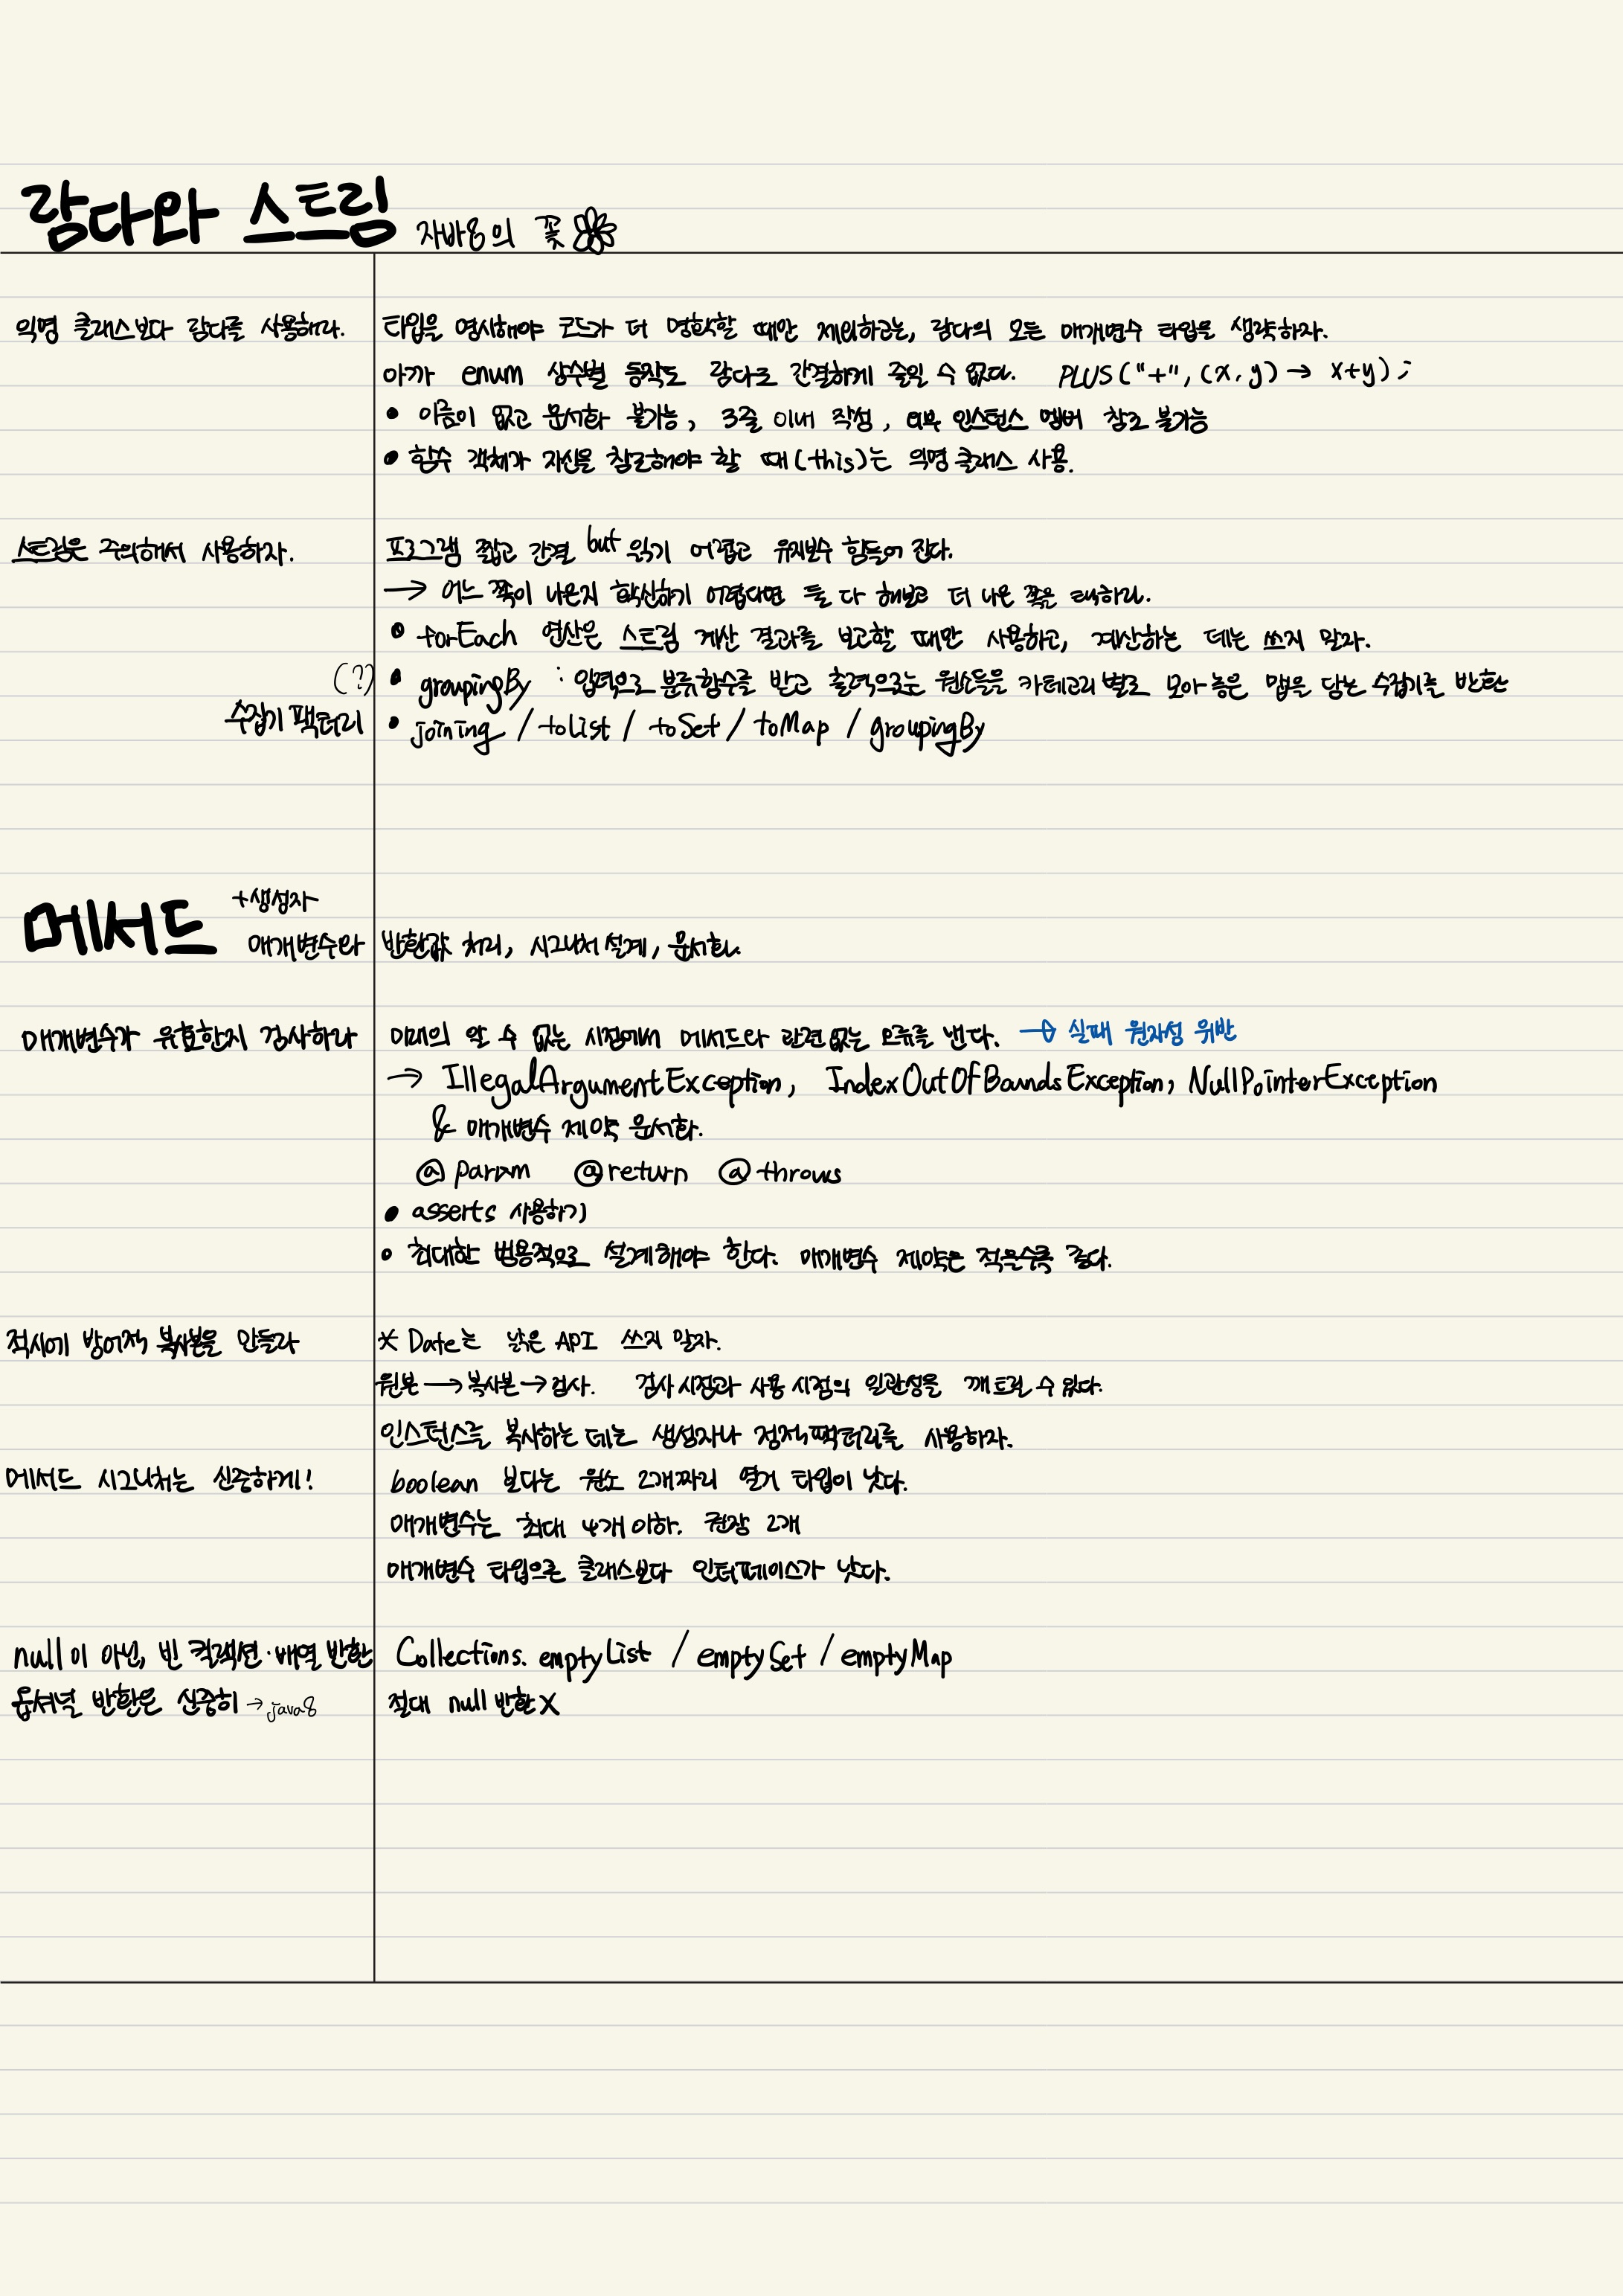 람다와 스트림 자바8의 꽃
익명 클래스보다 람다를 사용해라.
타입을 명시해야 코드가 더 명확할 때만 제외하고는, 람다의 모든 매개변수 타입을 생략하자.
아까 enum 상수별 동작도 람다로 간결하게 줄일 수 있다. PLUS("+", (x, y) → x+y);
• 이름이 없고 문서화 불가능, 3줄 이내 작성, 외부 인스턴스 멤버 참조 불가능
• 함수 객체가 자신을 참조해야 할 때(this)는 익명 클래스 사용.
스트림은 주의해서 사용하자.
프로그램 짧고 간결 but 읽기 어렵고 유지보수 힘들어 진다.
→ 어느 쪽이 나은지 확신하기 어렵다면 둘 다 해보고 더 나은 쪽을 택하라.
• forEach 연산은 스트림 계산 결과를 보고할 때만 사용하고, 계산하는 데는 쓰지 말자.
(?)
• groupingBy : 입력으로 분류함수를 받고 출력으로는 원소들을 카테고리 별로 모아 놓은 맵을 담은 수집기를 반환
수집기 팩터리
• joining / toList / toSet / toMap / groupingBy
메서드 +생성자
매개변수와 반환값 처리, 시그니처 설계, 문서화
매개변수가 유효한지 검사하라
미래의 알 수 없는 시점에서 메서드와 관련 없는 오류를 낸다. → 실패 원자성 위반
→ IllegalArgumentException, IndexOutOfBoundsException, NullPointerException
& 매개변수 제약 문서화.
@param @return @throws
• asserts 사용하기
• 최대한 범용적으로 설계해야 한다. 매개변수 제약은 적을수록 좋다.
적시에 방어적 복사본을 만들라
* Date는 낡은 API 쓰지 말자.
원본 → 복사본 → 검사. 검사 시점과 사용 시점의 일관성을 깨트릴 수 있다.
인스턴스를 복사하는 데는 생성자나 정적팩터리를 사용하자.
메서드 시그니처는 신중하게!
boolean 보다는 원소 2개짜리 열거 타입이 낫다.
매개변수는 최대 4개 이하. 권장 2개
매개변수 타입으론 클래스보다 인터페이스가 낫다.
null이 아닌, 빈 컬렉션·배열 반환
Collections. emptyList / emptySet / emptyMap
옵셔널 반환은 신중히 → java8
절대 null 반환 X